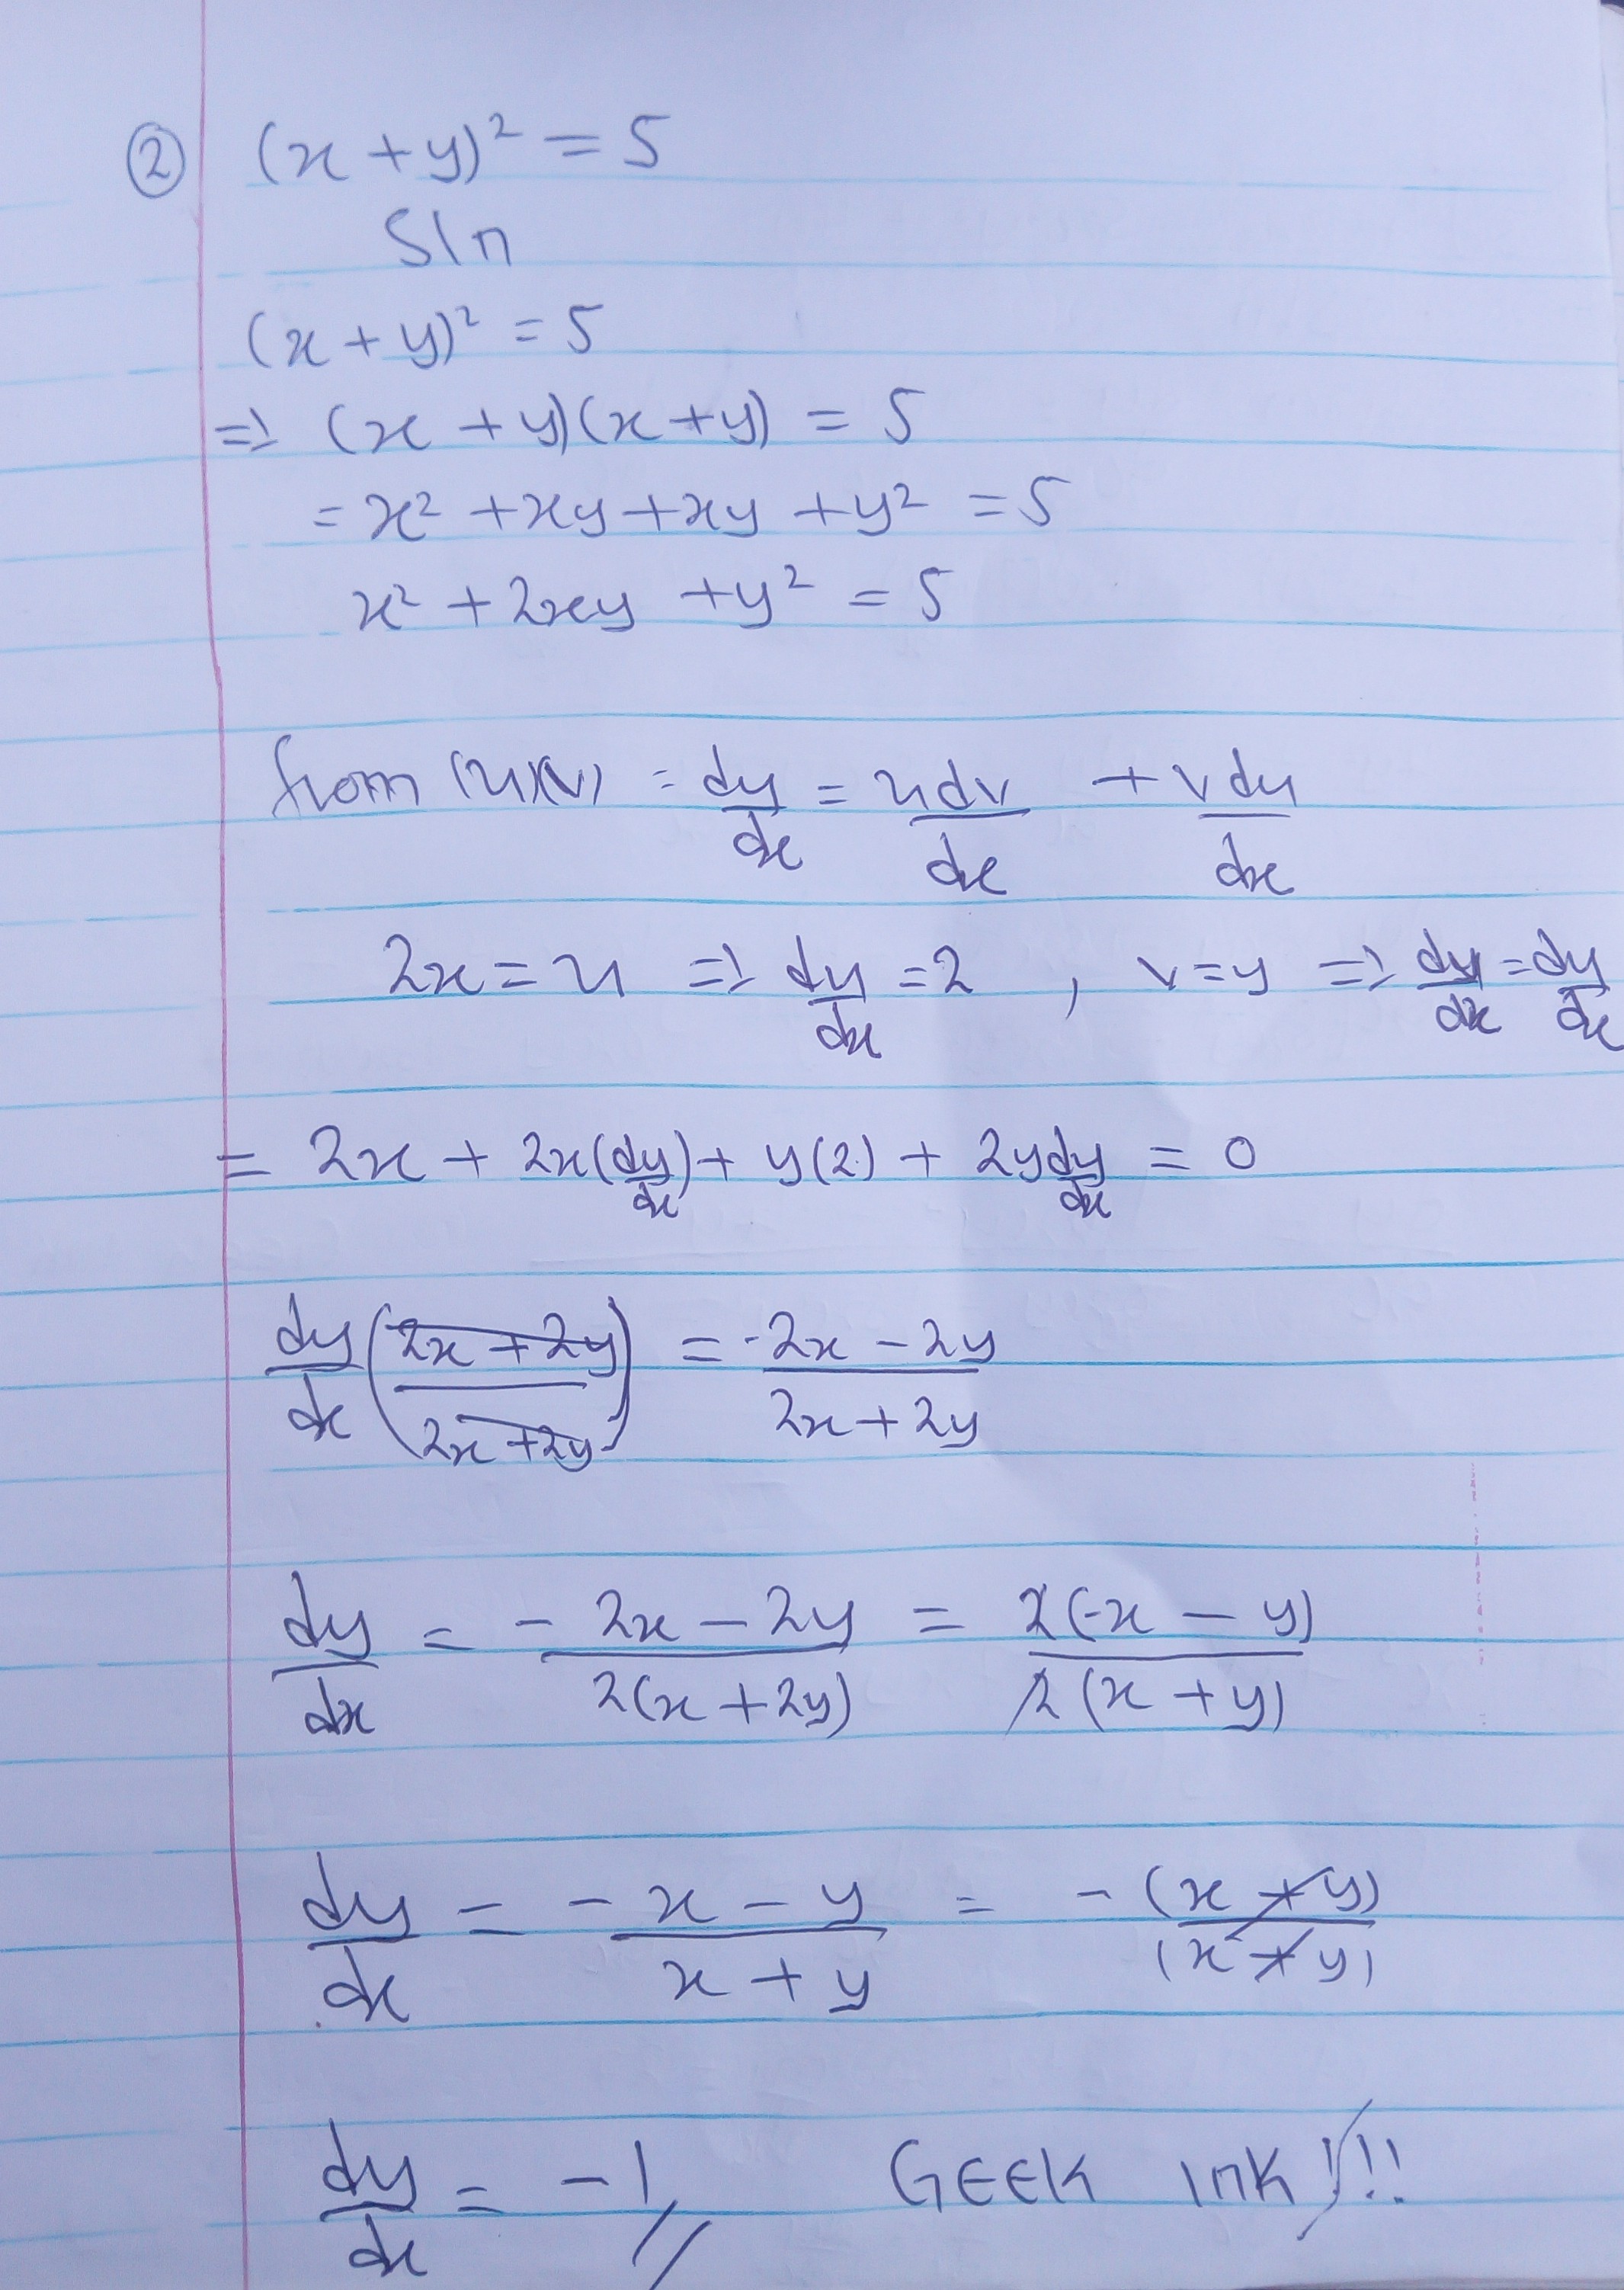 ② (x + y)² = 5
Sln
(x + y)² = 5
=> (x + y)(x + y) = 5
= x² + xy + xy + y² = 5
x² + 2xy + y² = 5
from (u)(v) = dy/dx = u dv/dx + v du/dx
2x = u => du/dx = 2 , v = y => dy/dx = dy/dx
= 2x + 2x(dy/dx) + y(2) + 2y dy/dx = 0
dy/dx (2x + 2y / 2x + 2y) = -2x - 2y / 2x + 2y
dy/dx = - 2x - 2y / 2(x + 2y) = 2(-x - y) / 2(x + y)
dy/dx = - x - y / x + y = - (x + y) / (x + y)
dy/dx = -1 // GEEK INK!!!